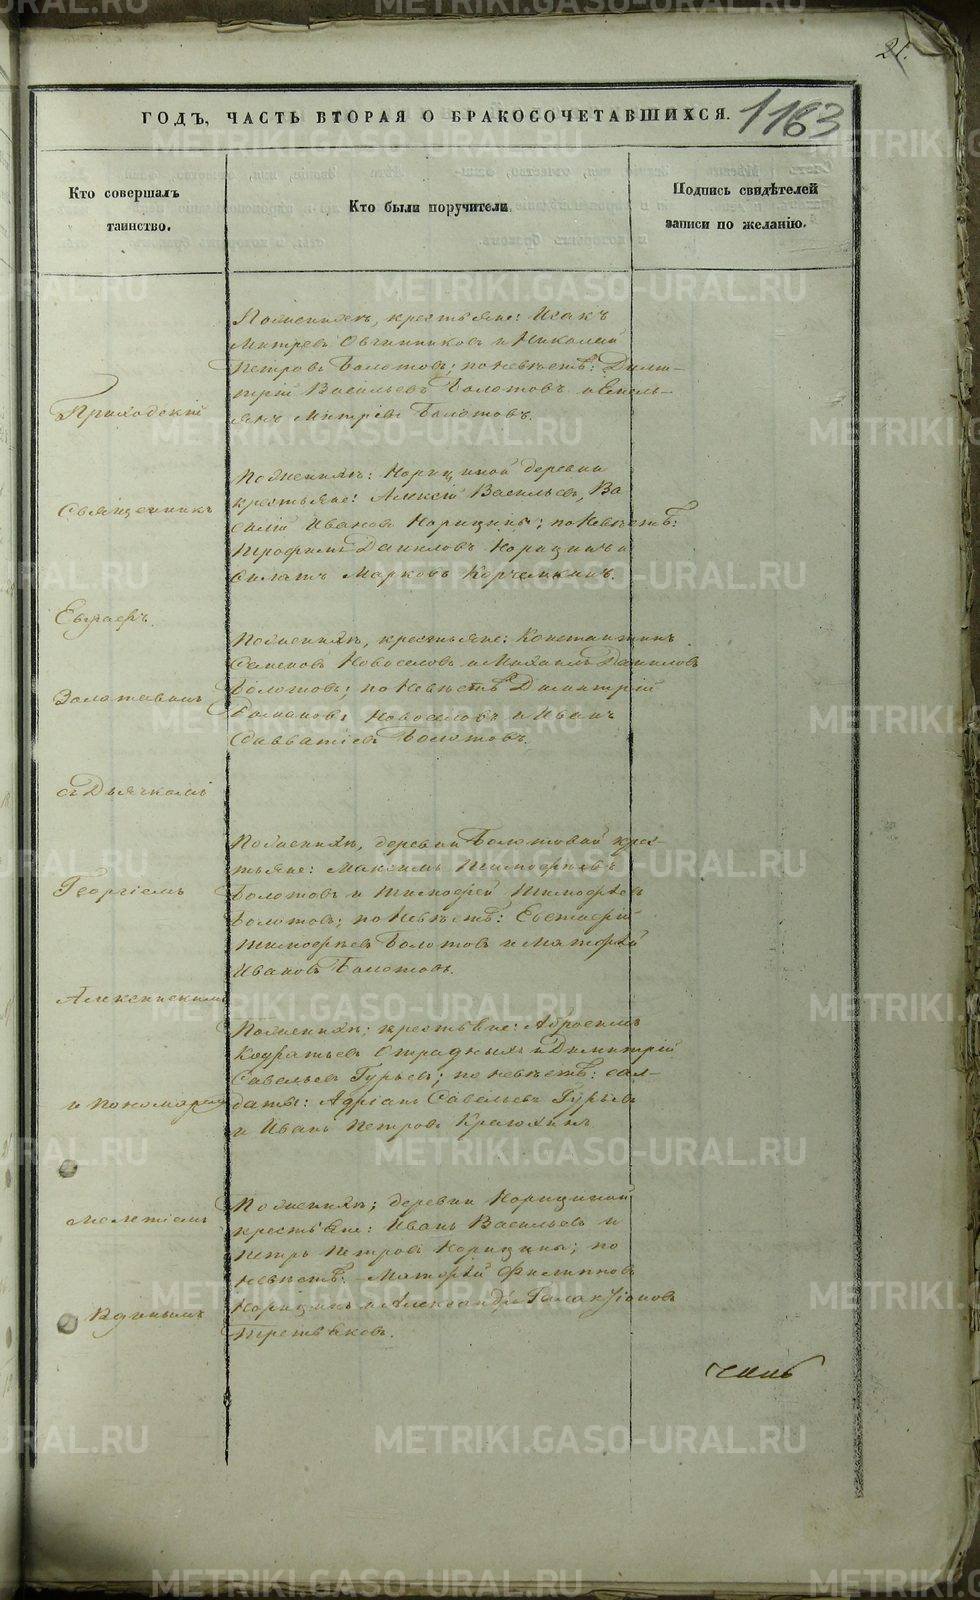 21.
ГОДЪ, ЧАСТЬ ВТОРАЯ О БРАКОСОЧЕТАВШИХСЯ.
1163
Кто совершалъ
таинство.
Кто были поручители
Подпись свидѣтелей
записи по желанію.
Приходскій
Священникъ
с Дьячкомъ
Георгіемъ
и пономаремъ
Мелетіемъ
По женихѣ, крестьяне: Исакъ
Митревъ Овчинниковъ и Николай
Петровъ Болотовъ; по невѣстѣ: Дими-
трій Васильевъ Болотовъ и Емель-
янъ Митріевъ Болотовъ.
По женихѣ: Норициной деревни
крестьяне: Алексій Васильевъ, Ва
силій Ивановъ Норицины; по невѣстѣ:
Трофимъ Даниловъ Норицинъ и
Марковъ
По женихѣ, крестьяне: Константинъ
Семеновъ Новоселовъ и Михаилъ Даниловъ
Болотовъ; по невѣстѣ Димитрій
Новоселовъ и Иванъ
Савватіевъ Болотовъ.
По женихѣ, деревни Болотовой крес-
тьяне: Максимъ Тимофѣевъ
Болотовъ и Тимофей Тимофѣевъ
Болотовъ; по невѣстѣ: Евстафій
Тимофѣевъ Болотовъ и Матфей
Ивановъ Болотовъ.
По женихѣ; крестьяне: Абросимъ
Отрадныхъ и Димитрій
Савельевъ Гурьевъ; по невѣстѣ: сол-
даты: Адріанъ Савельевъ Гурьевъ
и Иванъ Петровъ
По женихѣ; деревни Норициной
крестьяне: Иванъ Васильевъ и
Петръ Петровъ Норицины; по
невѣстѣ: Матфей Филиповъ
Норицинъ и Александръ Галактіоновъ
Третьяковъ.
METRIKI.GASO-URAL.RU